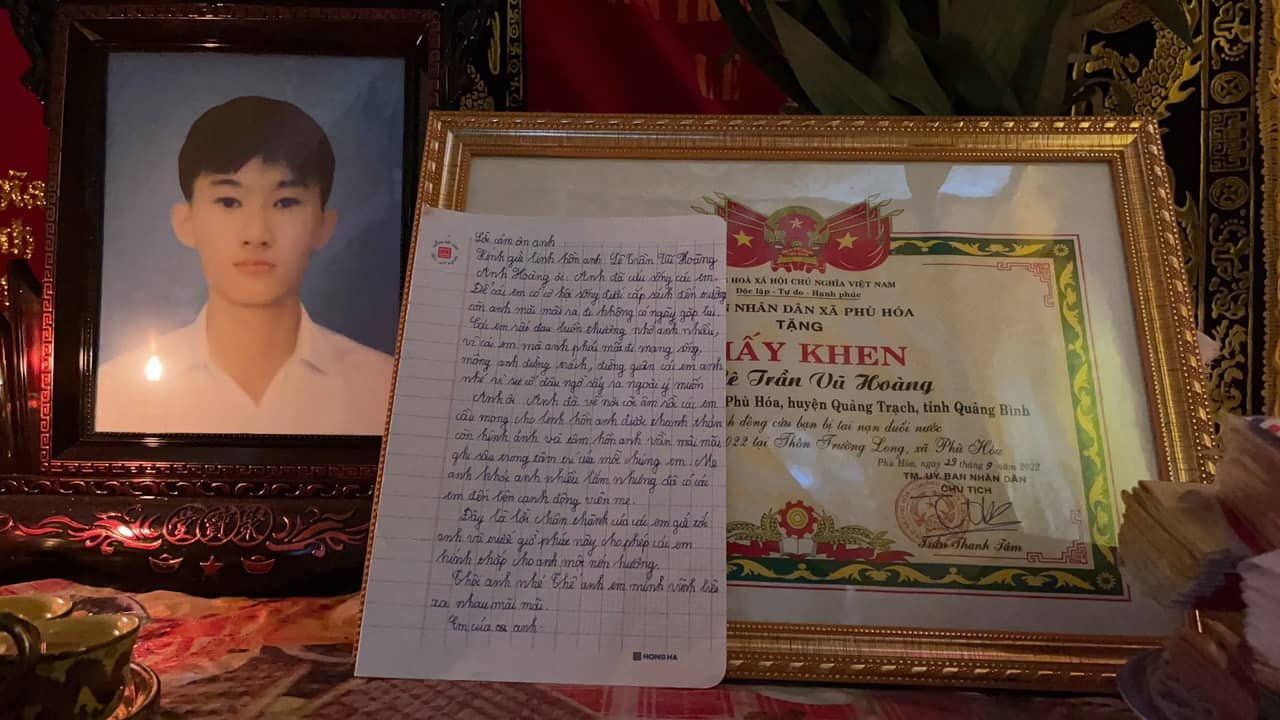 Lời cảm ơn anh
Kính gửi linh hồn anh: Lê Trần Vũ Hoàng
Anh Hoàng ơi. Anh đã cứu sống các em
Để các em có cơ hội sống dưới cắp sách đến trường
còn anh mãi mãi ra đi không có ngày gặp lại.
Các em rất đau buồn thương nhớ anh nhiều,
vì các em mà anh phải mất đi mạng sống,
mong anh đừng trách, đừng giận các em anh
nhé vì sự cố đâu ngờ sảy ra ngoài ý muốn
Anh ơi. Anh đã về nơi cõi âm rồi các em
cầu mong cho linh hồn anh được thanh thản
còn hình ảnh và tâm hồn anh vẫn mãi mãi
ghi sâu trong tâm trí của mỗi chúng em. Mẹ
anh khóc anh nhiều lắm nhưng đã có các
em đến bên cạnh động viên mẹ.
Đây là lời chân thành của các em gửi tới
anh và trước giờ phút này cho phép các em
kính thắp cho anh một nén hương.
Thôi anh nhé Thế anh em mình vĩnh biệt
xa nhau mãi mãi.
Em của anh
HONG HA
HOÀ XÃ HỘI CHỦ NGHĨA VIỆT NAM
Độc lập - Tự do - Hạnh phúc
N NHÂN DÂN XÃ PHÙ HÓA
TẶNG
IẤY KHEN
ê Trần Vũ Hoàng
Phù Hóa, huyện Quảng Trạch, tỉnh Quảng Bình
h động cứu bạn bị tai nạn đuối nước
2022 tại Thôn Trường Long, xã Phù Hóa
Phù Hóa, ngày 23 tháng 9 năm 2022
TM. UỶ BAN NHÂN DÂN
CHỦ TỊCH
Trần Thanh Tâm